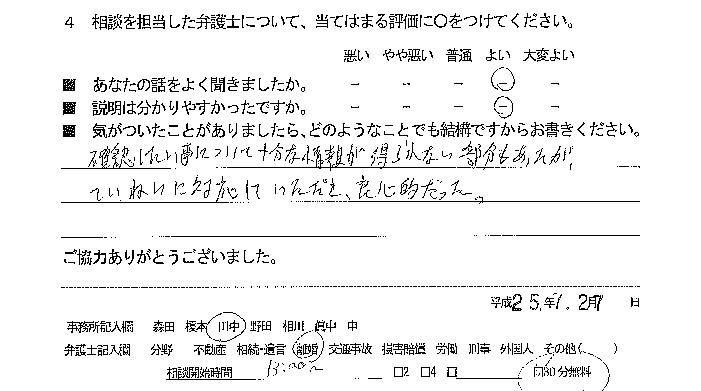 4 相談を担当した弁護士について、当てはまる評価に○をつけてください。
悪い やや悪い 普通 よい 大変よい
あなたの話をよく聞きましたか。 － － － － －
説明は分かりやすかったですか。 － － － － －
気がついたことがありましたら、どのようなことでも結構ですからお書きください。
確認したい事について十分な情報が得られない部分もあったが、
ていねいに対応していただき、良心的だった。
ご協力ありがとうございました。
平成25年 1. 27 日
事務所記入欄 森田 榎本 田中 野田 相川 眞中 中
弁護士記入欄 分野 不動産 相続・遺言 離婚 交通事故 損害賠償 労働 刑事 外国人 その他( )
相談開始時間 13:00~ □2 □4 □ □30分無料